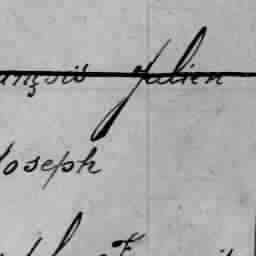 ançois Julien
Joseph